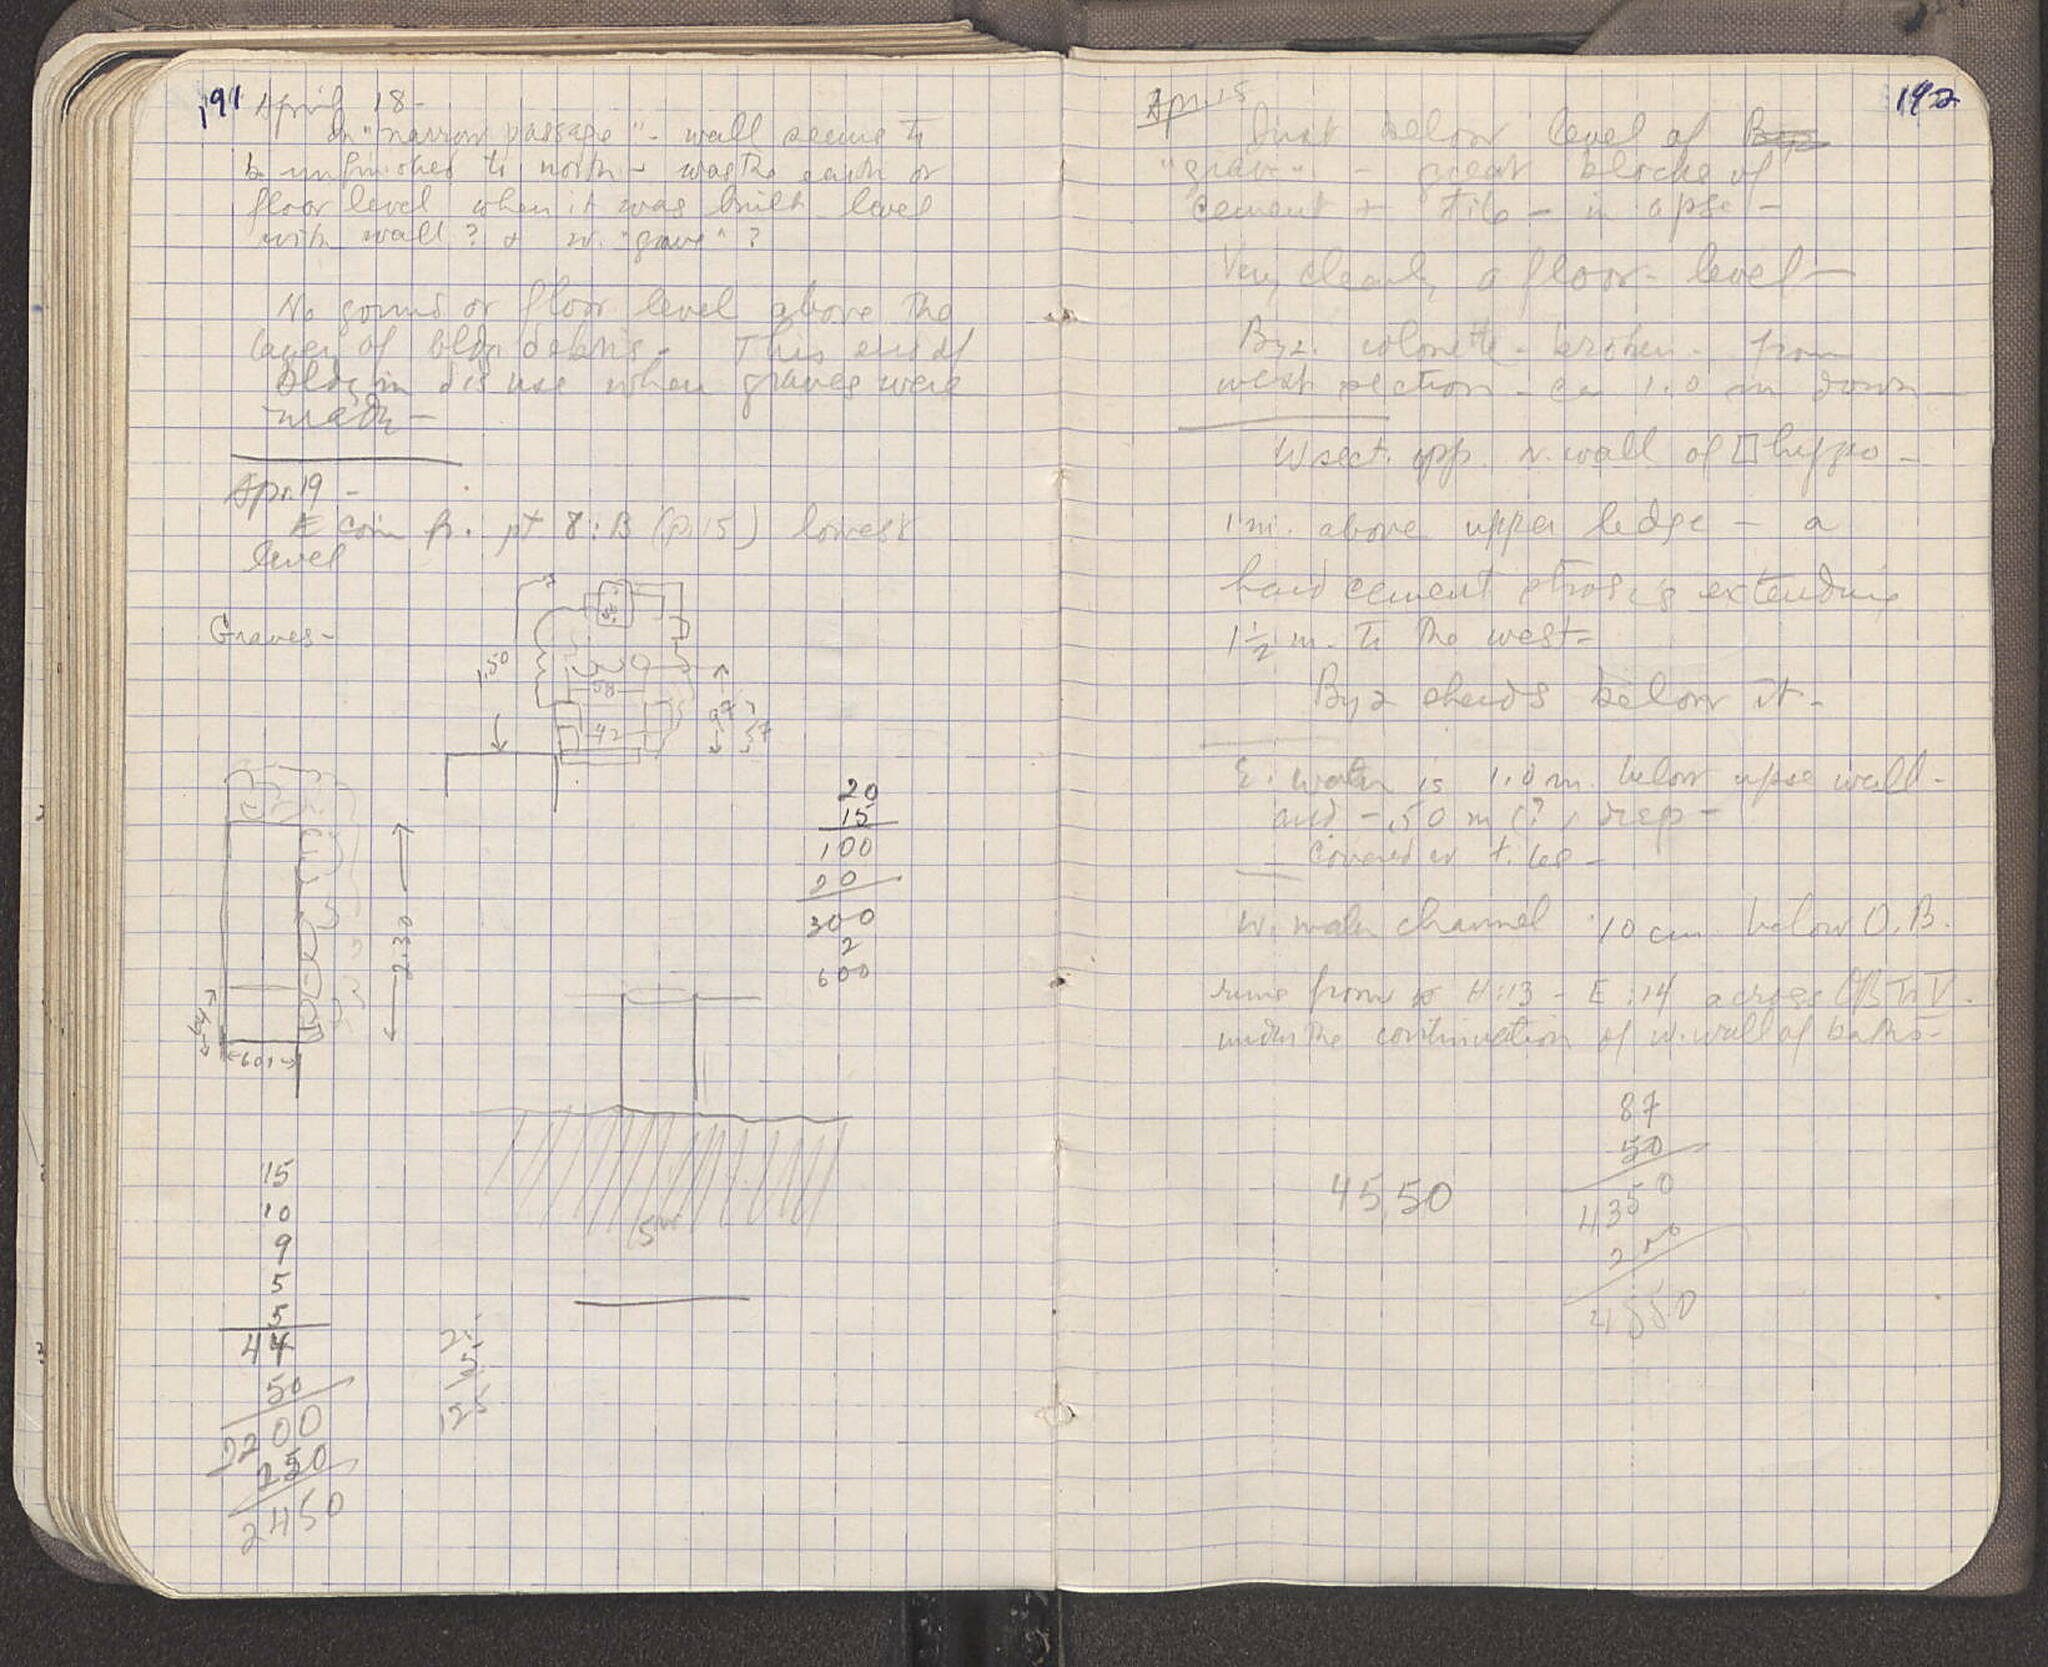 191 April 18 -
In "narrow passage" - wall seems to
be unfinished to north - was the earth or
floor level when it was built level
with wall? + w. "grave"?
No gound or floor level above the
layer of bldg debris - This end of
bldg in disuse when graves were
made -
Apr. 19 -
Æ coin fr. pt 8:B (p. 15) lowest
level
Graves -
1.50
58
42
97
37
20
15
100
20
300
2
600
2.30
64
60
5m
15
10
9
5
5
44
50
2200
250
2450
25
5
125
Apr. 15
192
Just below level of
"grave" - great blocks of
cement + tile - in apse -
Very clearly a floor-level -
Byz. colonette - broken - from
west section - ca 1.0 m down -
W sect. opp. N. wall of □ hypo -
1 m. above upper ledge - a
hard cement strosis extending
1½ m. to the west -
Byz sherds below it -
E. water is 1.0 m. below apse wall -
and - .50 m (?) deep -
covered w tile -
W. water channel 10 cm below O.B.
runs from H:13 - E:14 across OB to V.
under the continuation of w. wall of baths -
87
50
4350
200
4550
45.50